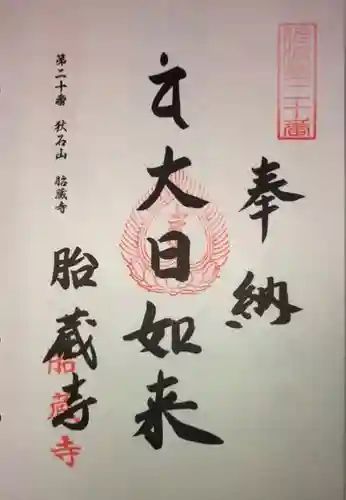 奉納
大日如来
第二十番 狄石山 胎蔵寺
胎蔵寺
胎蔵寺